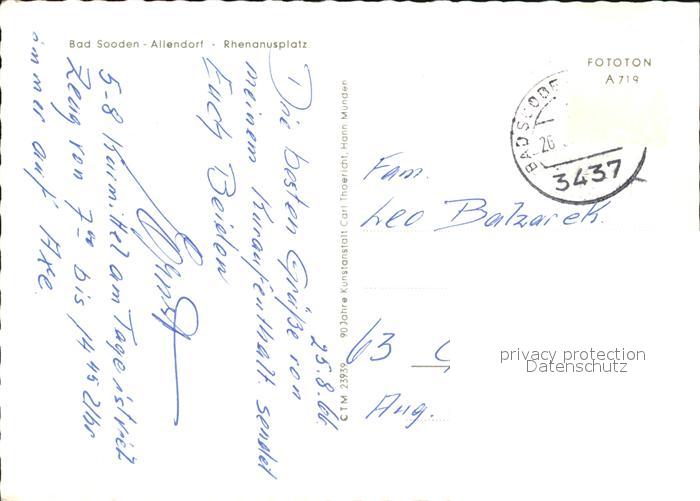 Bad Sooden - Allendorf - Rhenanusplatz
25.8.66.
Die besten Grüße von
meinem Kuraufenthalt sendet
Euch Beiden
5-8 Kurmittel am Tage ist viel
Zeug von 7⁰⁰ bis 14⁴⁵ Uhr
immer auf Axe.
CTM 23939 90 Jahre Kunstanstalt Carl Thoericht, Hann Münden
FOTOTON
A 719
BAD SOODE
26
3437
Fam.
Leo Balzarek.
63
Aug.
privacy protection
Datenschutz